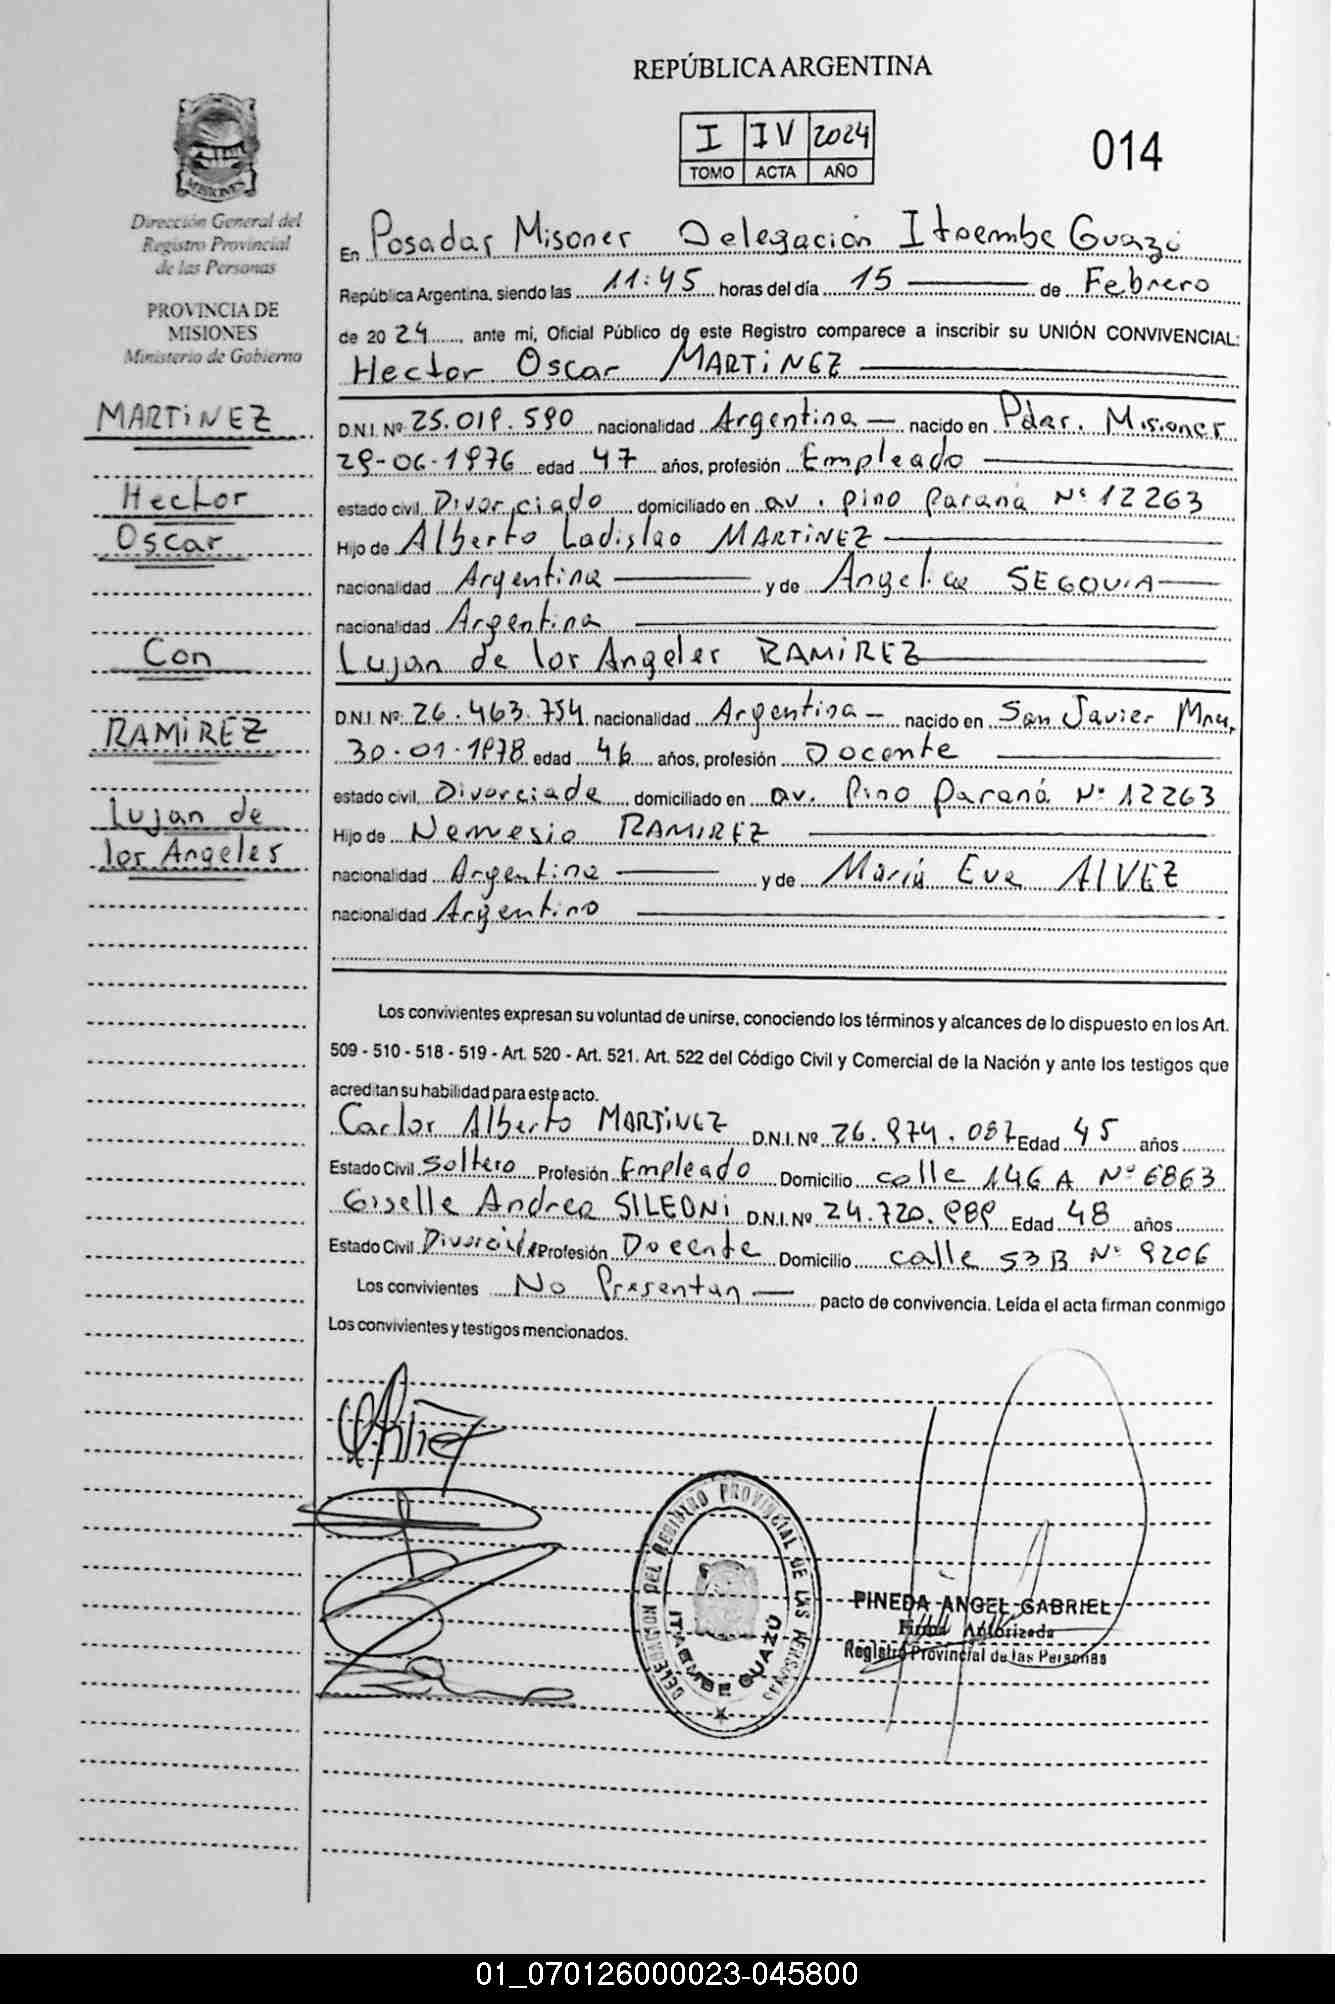 REPÚBLICA ARGENTINA
I IV 2024
TOMO ACTA AÑO
014
MISIONES
Dirección General del
Registro Provincial
de las Personas
PROVINCIA DE
MISIONES
Ministerio de Gobierno
MARTINEZ
Hector
Oscar
Con
RAMIREZ
Lujan de
los Angeles
En Posadas Misiones Delegación Itaembe Guazú
República Argentina, siendo las 11:45 horas del día 15 de Febrero
de 2024, ante mí, Oficial Público de este Registro comparece a inscribir su UNIÓN CONVIVENCIAL:
Hector Oscar MARTINEZ
D.N.I. Nº 25.019.590 nacionalidad Argentina nacido en Pdas. Misiones
29-06-1976 edad 47 años, profesión Empleado
estado civil Divorciado domiciliado en av. pino Paraná Nº 12263
Hijo de Alberto Ladislao MARTINEZ
nacionalidad Argentina y de Angelica SEGOVIA
nacionalidad Argentina
Lujan de los Angeles RAMIREZ
D.N.I. Nº 26.463.754 nacionalidad Argentina nacido en San Javier Mnes.
30-01-1978 edad 46 años, profesión Docente
estado civil Divorciada domiciliado en av. Pino Paraná Nº 12263
Hijo de Nemesio RAMIREZ
nacionalidad Argentina y de María Eva ALVEZ
nacionalidad Argentino
Los convivientes expresan su voluntad de unirse, conociendo los términos y alcances de lo dispuesto en los Art.
509 - 510 - 518 - 519 - Art. 520 - Art. 521. Art. 522 del Código Civil y Comercial de la Nación y ante los testigos que
acreditan su habilidad para este acto.
Carlos Alberto MARTINEZ D.N.I. Nº 26.974.087 Edad 45 años
Estado Civil Soltero Profesión Empleado Domicilio calle 146 A Nº 6863
Giselle Andrea SILEONI D.N.I. Nº 24.720.989 Edad 48 años
Estado Civil Divorciada Profesión Docente Domicilio calle 53 B Nº 9206
Los convivientes No Presentan pacto de convivencia. Leída el acta firman conmigo
Los convivientes y testigos mencionados.
DELEGACION DEL REGISTRO PROVINCIAL DE LAS PERSONAS
ITAEMBE GUAZÚ
PINEDA ANGEL GABRIEL
Firma Autorizada
Registro Provincial de las Personas
01_070126000023-045800